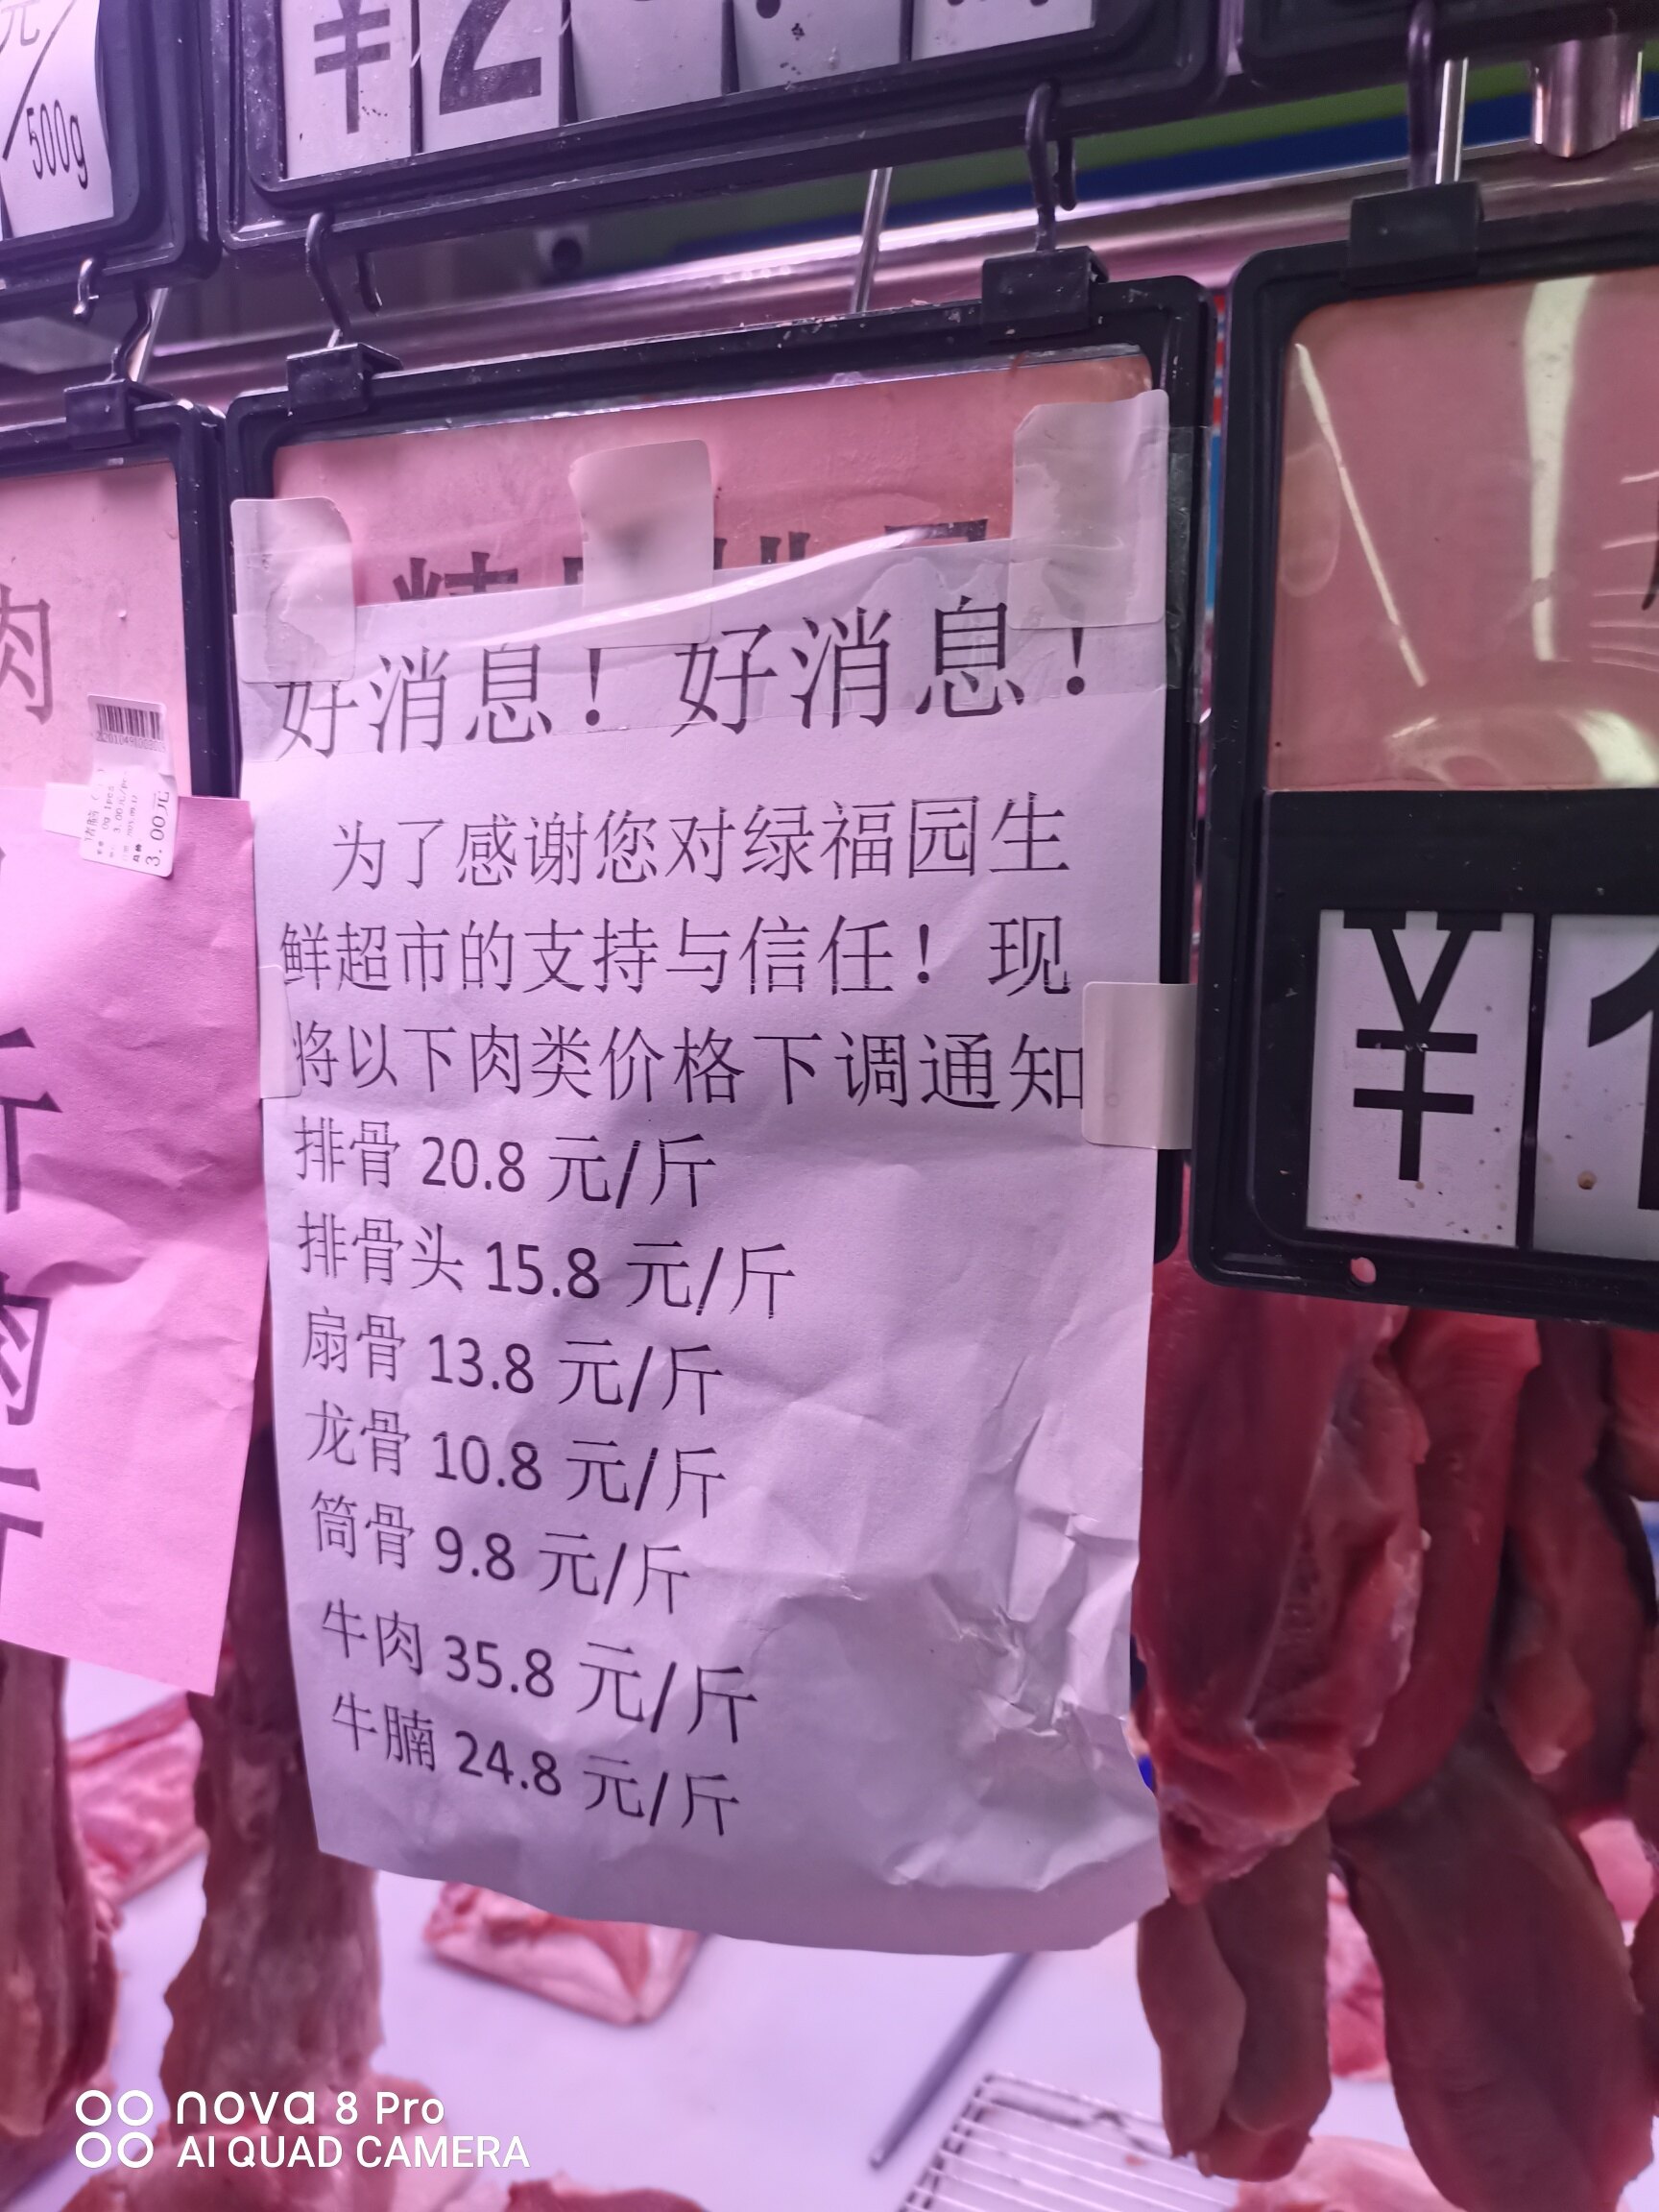 元/500g
¥2
好消息！好消息！
为了感谢您对绿福园生
鲜超市的支持与信任！现
将以下肉类价格下调通知
排骨 20.8 元/斤
排骨头 15.8 元/斤
扇骨 13.8 元/斤
龙骨 10.8 元/斤
筒骨 9.8 元/斤
牛肉 35.8 元/斤
牛腩 24.8 元/斤
肉
3.00元
斤
肉
¥1
nova 8 Pro
AI QUAD CAMERA